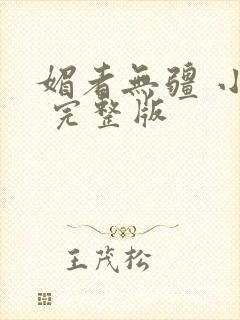 媚者無疆 小
完整版
王茂松